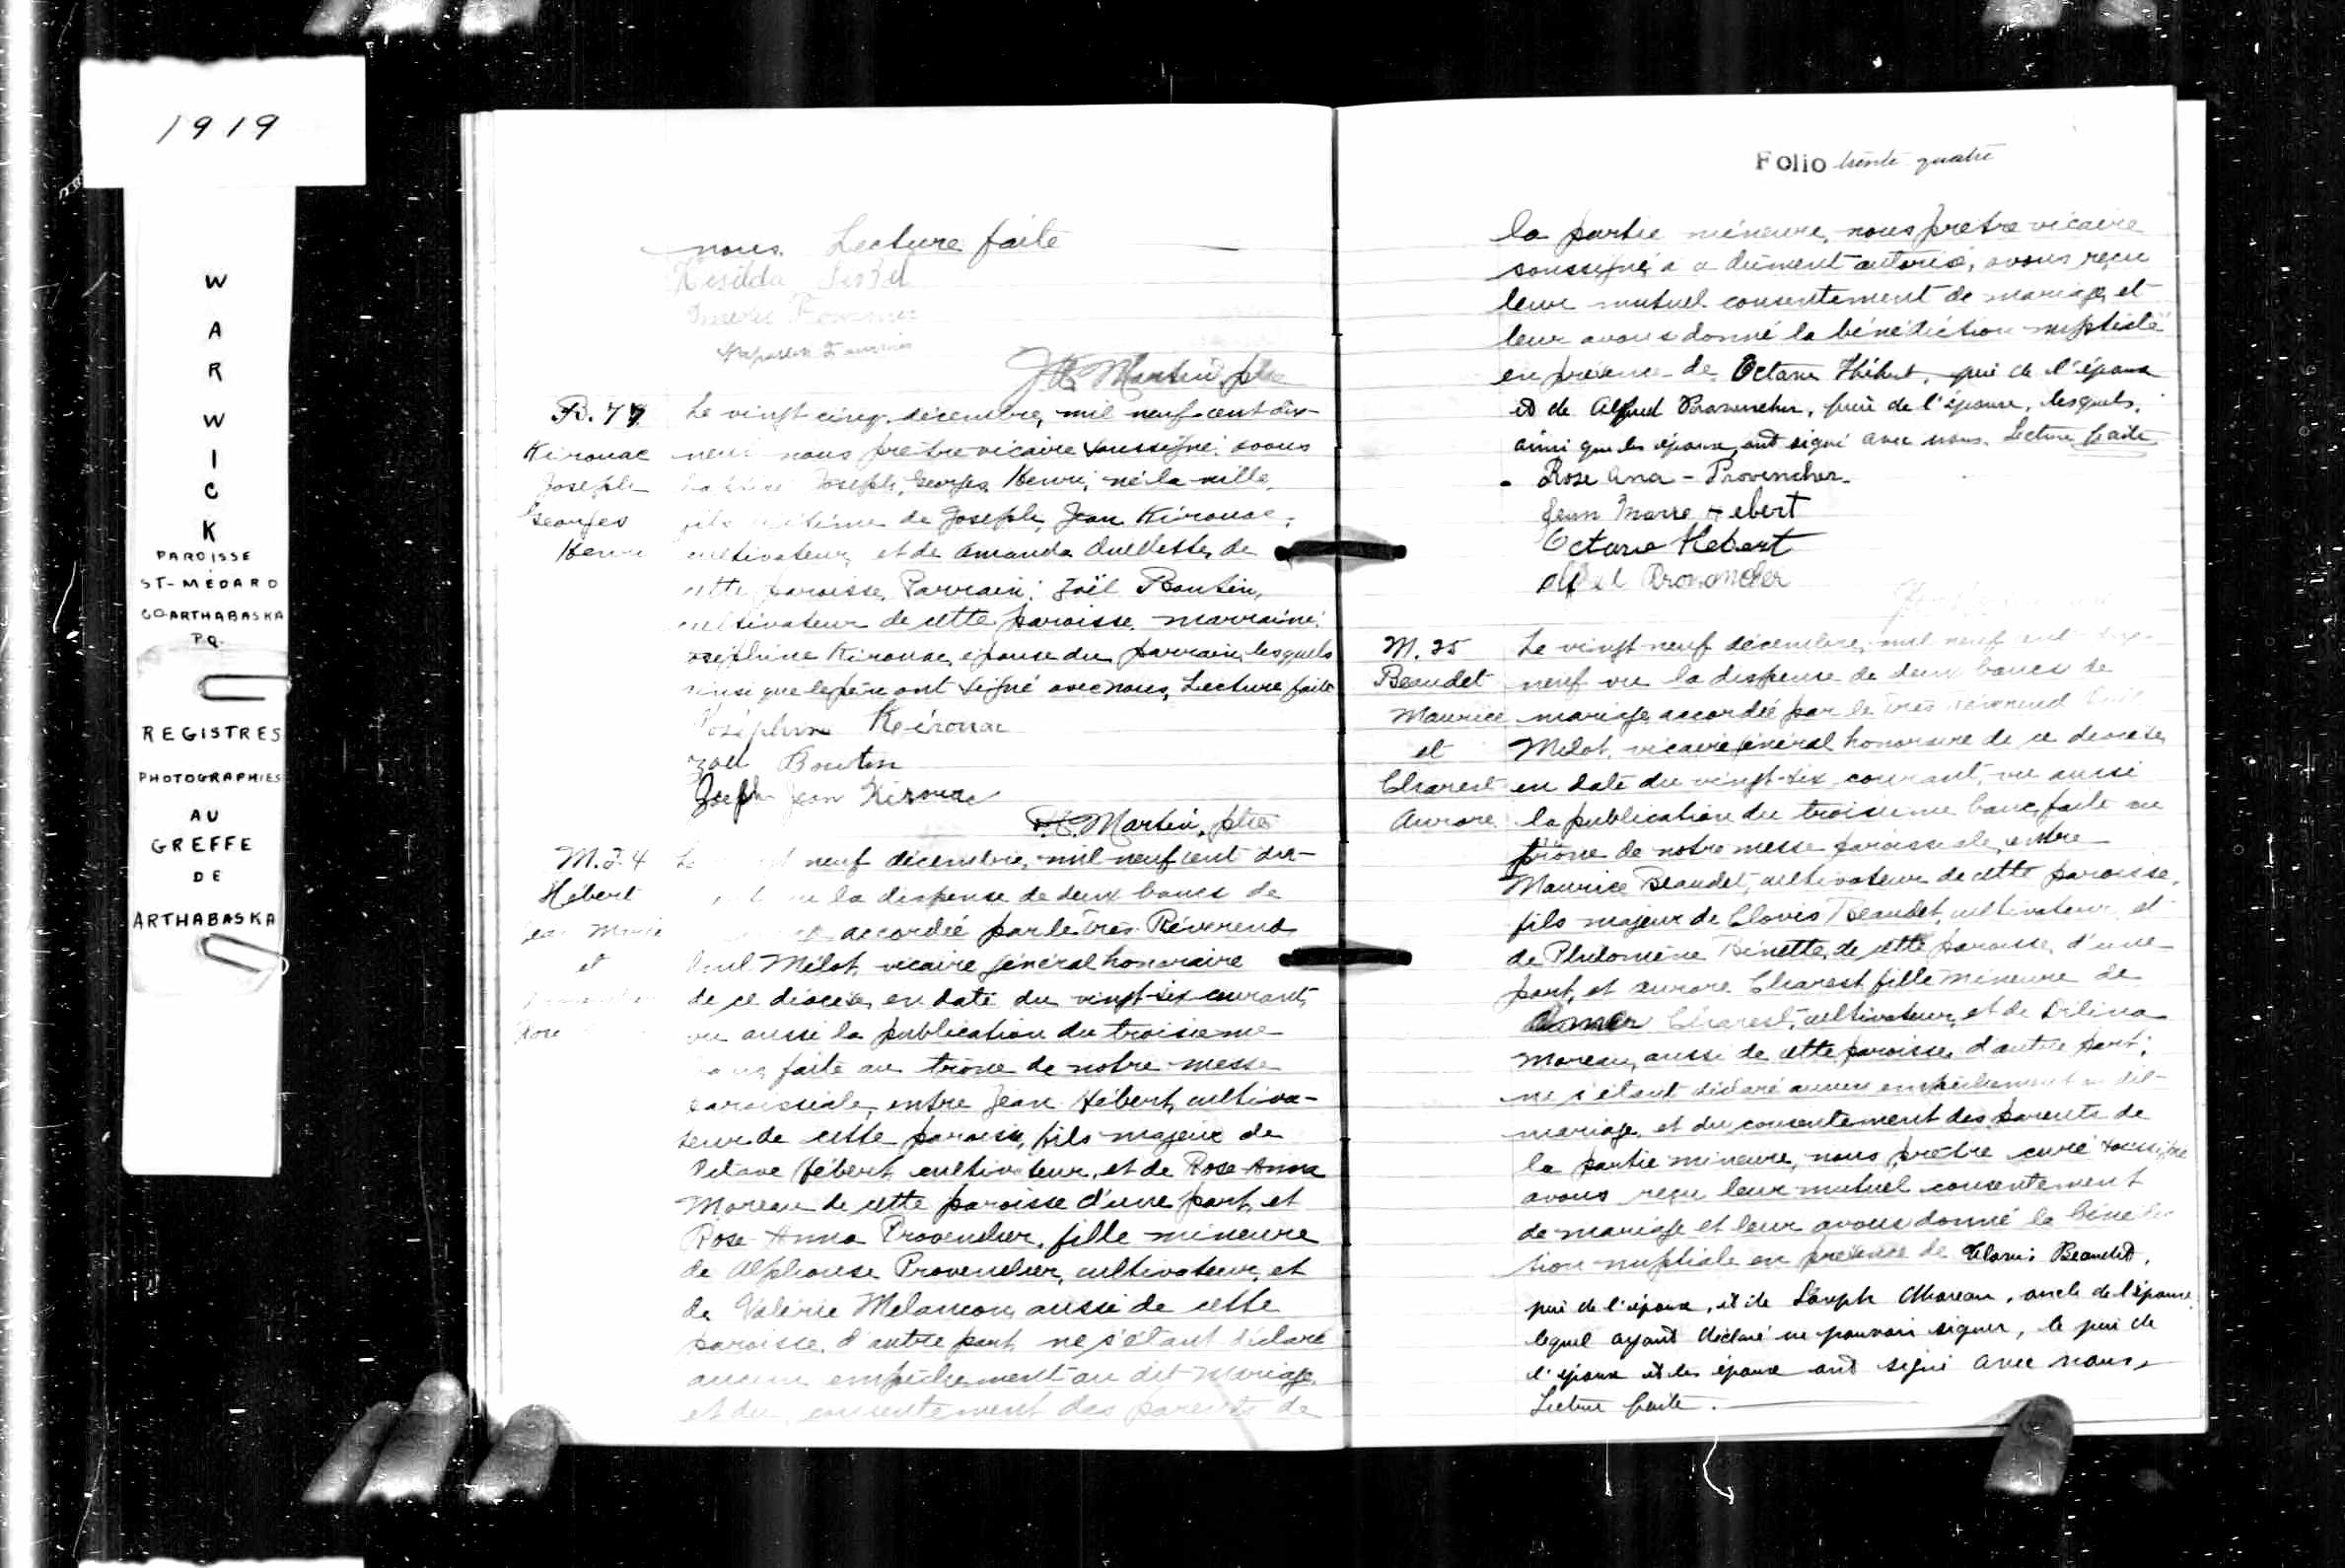 1919
W
A
R
W
I
C
K
PAROISSE
ST-MÉDARD
CO ARTHABASKA
P.Q.
REGISTRES
PHOTOGRAPHIES
AU
GREFFE
DE
ARTHABASKA
nous. Lecture faite
Martin, ptre
B. 77
Kirouac
Joseph
Georges
Henri
Le vingt cinq décembre, mil neuf cent dix-
neuf nous prêtre vicaire soussigné avons
Joseph, Georges, Henri, né la veille,
fils légitime de Joseph, Jean Kirouac,
cultivateur, et de Amanda Ouellette, de
cette paroisse, Parrain: Joël Boutin,
cultivateur de cette paroisse, marraine:
Joséphine Kirouac, épouse du parrain, lesquels
ainsi que le père ont signé avec nous, Lecture faite
Joséphine Kérouac
Boutin
Joseph Jean Kirouac
Martin, ptre
M. 24
Hébert
Jean Marie
et
Rose
neuf décembre, mil neuf cent dix-
la dispense de deux bancs de
accordée par le Très Révérend
Mélot, vicaire général honoraire
de ce diocèse, en date du vingt-six courant,
vu aussi la publication du troisième
faite au trône de notre messe
paroissiale, entre Jean Hébert, cultiva-
teur de cette paroisse, fils majeur de
Octave Hébert, cultivateur, et de Rose-Anna
Moreau de cette paroisse d'une part, et
Rose-Anna Provencher, fille mineure
de Alphonse Provencher, cultivateur, et
de Valérie Melançon, aussi de cette
paroisse, d'autre part, ne s'étant déclaré
aucun empêchement au dit mariage,
et du consentement des parents de
Folio trente quatre
la partie mineure, nous prêtre vicaire
soussigné à ce dûment autorisé, avons reçu
leur mutuel consentement de mariage, et
leur avons donné la bénédiction nuptiale
en présence de Octave Hébert, père de l'époux
et de Alfred Provencher, frère de l'épouse, lesquels,
ainsi que les époux, ont signé avec nous. Lecture faite
Rose Ana - Provencher
Jean Marie Hebert
Octave Hebert
Provencher
M. 25
Beaudet
Maurice
et
Charest
Aurore
Le vingt-neuf décembre, mil neuf cent dix-
neuf vu la dispense de deux bancs de
mariage, accordée par le Très Révérend
Mélot, vicaire général honoraire de ce diocèse,
en date du vingt-six courant, vu aussi
la publication du troisième banc, faite au
prône de notre messe paroissiale, entre
Maurice Beaudet, cultivateur de cette paroisse,
fils majeur de Clovis Beaudet, cultivateur, et
de Philomène Binette, de cette paroisse, d'une
part, et Aurore Charest, fille mineure de
Charest, cultivateur, et de Délina
Moreau, aussi de cette paroisse, d'autre part;
ne s'étant déclaré aucun empêchement au dit
mariage, et du consentement des parents de
la partie mineure, nous, prêtre curé soussigné
avons reçu leur mutuel consentement
de mariage et leur avons donné la bénédic
tion nuptiale en présence de Clovis Beaudet,
père de l'époux, et de Joseph Moreau, oncle de l'épouse,
lequel ayant déclaré ne pouvoir signer, le père de
l'époux et les époux ont signé avec nous,
Lecture faite.